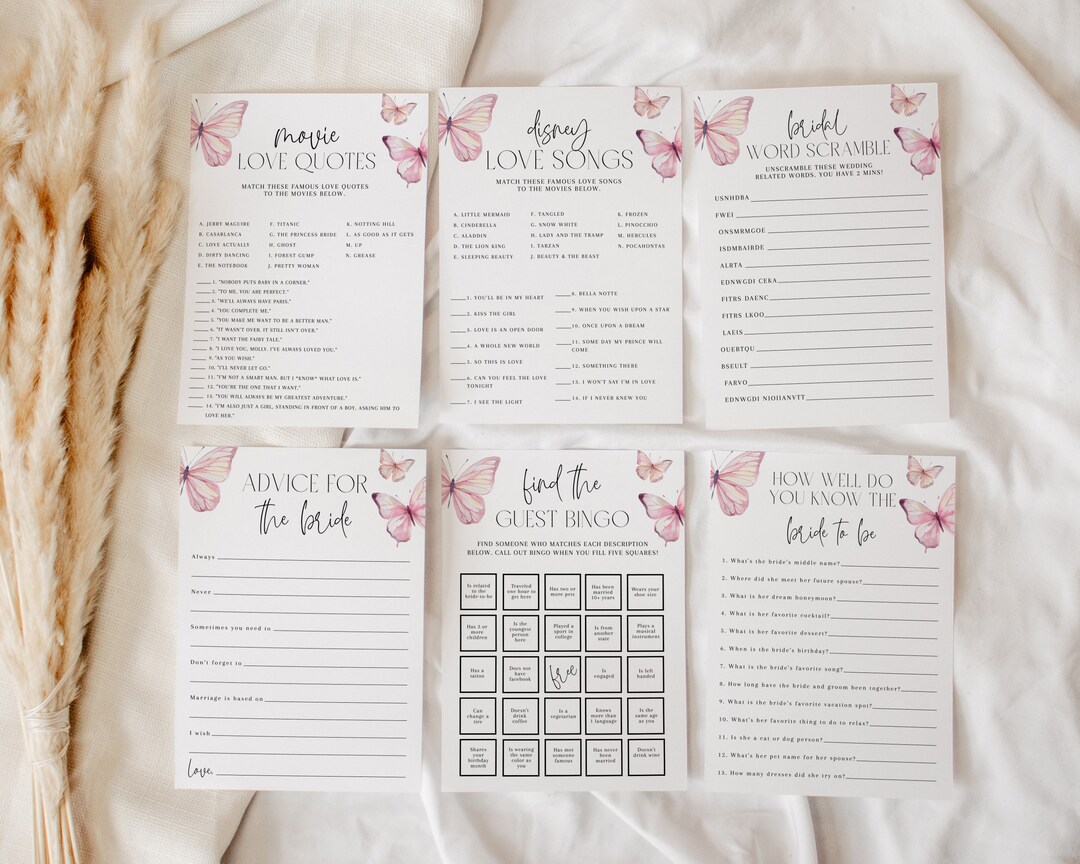 movie
LOVE QUOTES
MATCH THESE FAMOUS LOVE QUOTES
TO THE MOVIES BELOW.
A. JERRY MAGUIRE
B. CASABLANCA
C. LOVE ACTUALLY
D. DIRTY DANCING
E. THE NOTEBOOK
F. TITANIC
G. THE PRINCESS BRIDE
H. GHOST
I. FOREST GUMP
J. PRETTY WOMAN
K. NOTTING HILL
L. AS GOOD AS IT GETS
M. UP
N. GREASE
1. "NOBODY PUTS BABY IN A CORNER."
2. "TO ME, YOU ARE PERFECT."
3. "WE'LL ALWAYS HAVE PARIS."
4. "YOU COMPLETE ME."
5. "YOU MAKE ME WANT TO BE A BETTER MAN."
6. "IT WASN'T OVER, IT STILL ISN'T OVER."
7. "I WANT THE FAIRY TALE."
8. "I LOVE YOU, MOLLY. I'VE ALWAYS LOVED YOU."
9. "AS YOU WISH."
10. "I'LL NEVER LET GO."
11. "I'M NOT A SMART MAN, BUT I *KNOW* WHAT LOVE IS."
12. "YOU'RE THE ONE THAT I WANT."
13. "YOU WILL ALWAYS BE MY GREATEST ADVENTURE."
14. "I'M ALSO JUST A GIRL, STANDING IN FRONT OF A BOY, ASKING HIM TO
LOVE HER."
disney
LOVE SONGS
MATCH THESE FAMOUS LOVE SONGS
TO THE MOVIES BELOW.
A. LITTLE MERMAID
B. CINDERELLA
C. ALADDIN
D. THE LION KING
E. SLEEPING BEAUTY
F. TANGLED
G. SNOW WHITE
H. LADY AND THE TRAMP
I. TARZAN
J. BEAUTY & THE BEAST
K. FROZEN
L. PINOCCHIO
M. HERCULES
N. POCAHONTAS
1. YOU'LL BE IN MY HEART
2. KISS THE GIRL
3. LOVE IS AN OPEN DOOR
4. A WHOLE NEW WORLD
5. SO THIS IS LOVE
6. CAN YOU FEEL THE LOVE
TONIGHT
7. I SEE THE LIGHT
8. BELLA NOTTE
9. WHEN YOU WISH UPON A STAR
10. ONCE UPON A DREAM
11. SOME DAY MY PRINCE WILL
COME
12. SOMETHING THERE
13. I WON'T SAY I'M IN LOVE
14. IF I NEVER KNEW YOU
bridal
WORD SCRAMBLE
UNSCRAMBLE THESE WEDDING
RELATED WORDS. YOU HAVE 2 MINS!
USNHDBA
FWEI
ONSMRMGOE
ISDMBAIRDE
ALRTA
EDNWGDI CEKA
FITRS DAENC
FITRS LKOO
LAEIS
OUEBTQU
BSEULT
FARVO
EDNWGDI NIOIIANVTT
ADVICE FOR
the bride
Always
Never
Sometimes you need to
Don't forget to
Marriage is based on
I wish
Love,
find the
GUEST BINGO
FIND SOMEONE WHO MATCHES EACH DESCRIPTION
BELOW. CALL OUT BINGO WHEN YOU FILL FIVE SQUARES!
Is related
to the
bride-to-be
Traveled
one hour to
get here
Has two or
more pets
Has been
married
10+ years
Wears your
shoe size
Has 3 or
more
children
Is the
youngest
person
here
Played a
sport in
college
Is from
another
state
Plays a
musical
instrument
Has a
tattoo
Does not
have
facebook
free
Is
engaged
Is left
handed
Can
change a
tire
Doesn't
drink
coffee
Is a
vegetarian
Knows
more than
1 language
Is the
same age
as you
Shares
your
birthday
month
Is wearing
the same
color as
you
Has met
someone
famous
Has never
been
married
Doesn't
drink wine
HOW WELL DO
YOU KNOW THE
bride to be
1. What's the bride's middle name?
2. Where did she meet her future spouse?
3. What is her dream honeymoon?
4. What is her favorite cocktail?
5. What is her favorite dessert?
6. When is the bride's birthday?
7. What is the bride's favorite song?
8. How long have the bride and groom been together?
9. What is the bride's favorite vacation spot?
10. What's her favorite thing to do to relax?
11. Is she a cat or dog person?
12. What's her pet name for her spouse?
13. How many dresses did she try on?